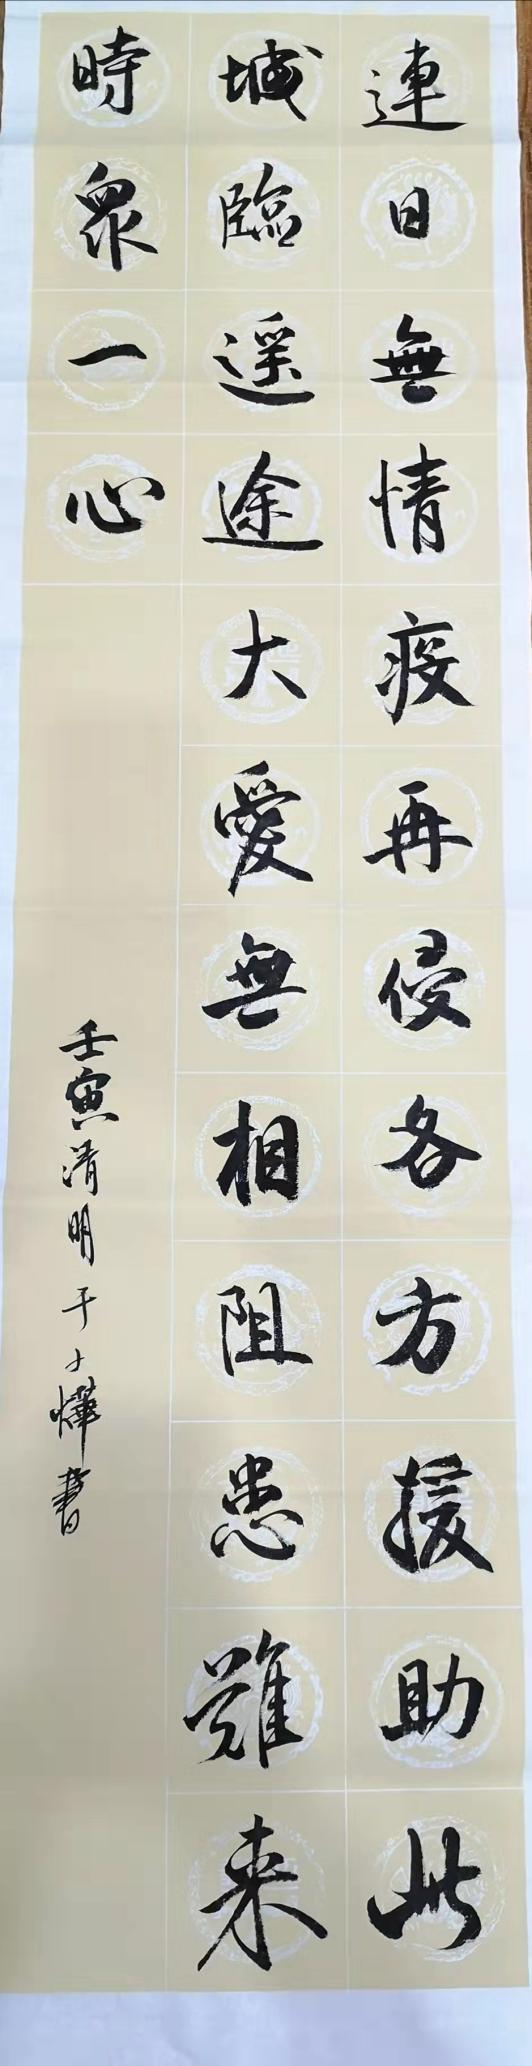 連日無情疫再侵各方援助此
城臨遥途大愛無相阻患難来
時衆一心
壬寅清明于士燁書